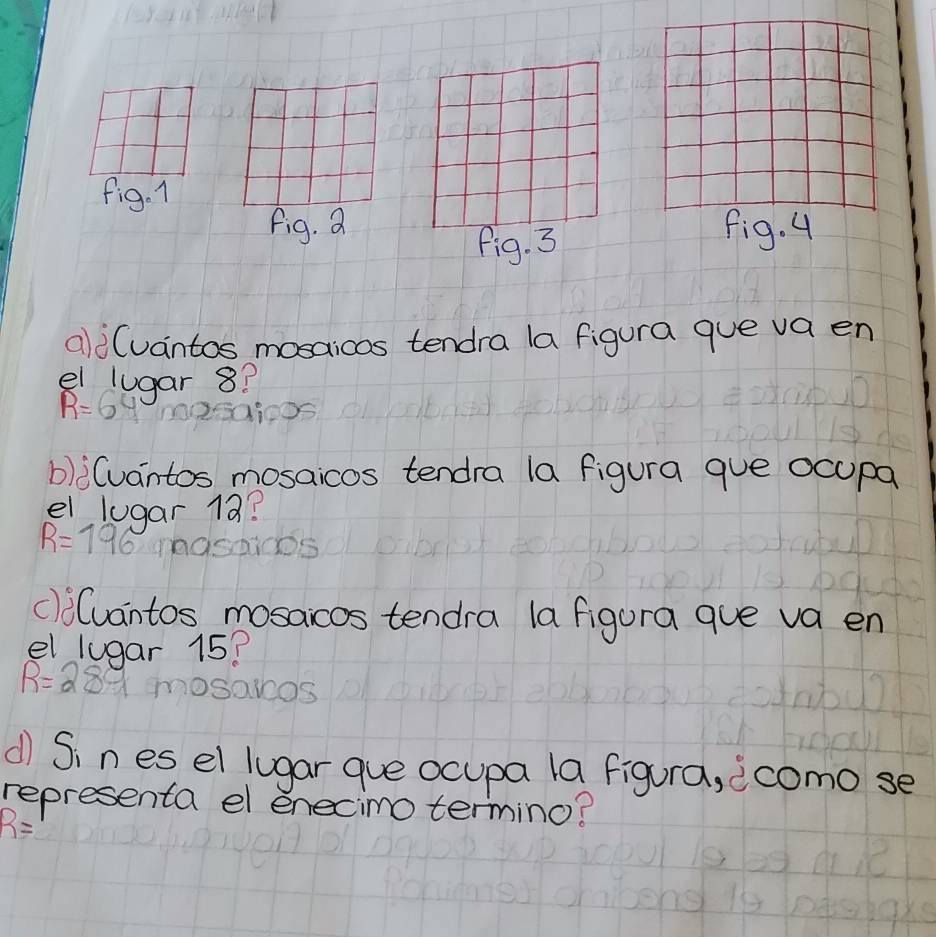 fig. 1
fig. 2
fig. 3
fig. 4
a) ¿Cuántos mosaicos tendra la figura que va en
el lugar 8?
R= 64 mosaicos
b) ¿Cuántos mosaicos tendra la figura que ocupa
el lugar 12?
R= 196 mosaicos
c) ¿Cuántos mosaicos tendra la figura que va en
el lugar 15?
R= 289 mosaicos
d) Si n es el lugar que ocupa la figura, ¿como se
representa el enecimo termino?
R=